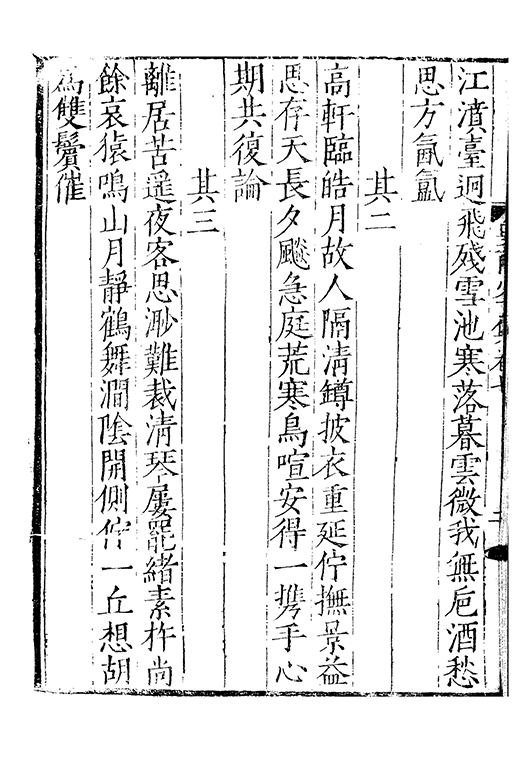 江濆臺迥飛殘雪池寒落暮雲微我無卮酒愁
思方氤氳
其二
高軒臨皓月故人隔清罇披衣重延佇撫景益
思存天長夕飈急庭荒寒鳥喧安得一攜手心
期共復論
其三
離居苦遥夜客思渺難裁清琴屢罷緒素杵尚
餘哀猿鳴山月靜鶴舞澗陰開側佇一丘想胡
為雙鬢催